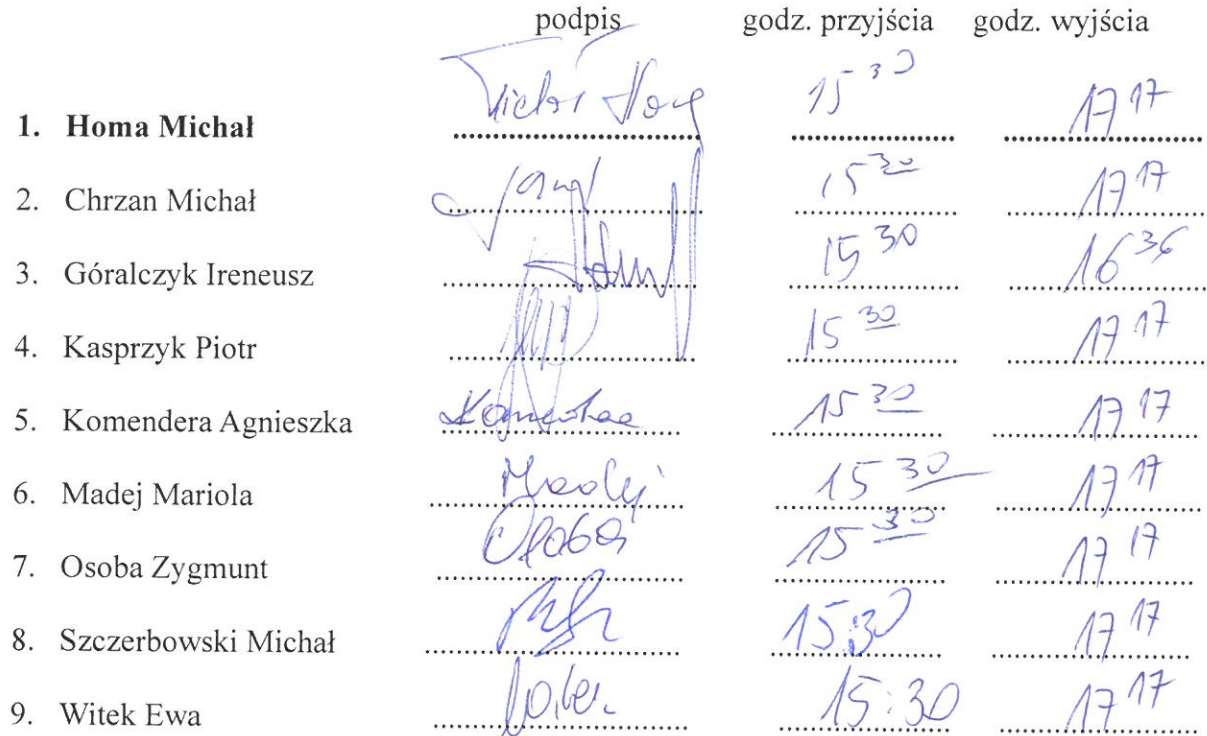 podpis godz. przyjścia godz. wyjścia
1. Homa Michał 15 30 17 17
2. Chrzan Michał 15 30 17 17
3. Góralczyk Ireneusz 15 30 16 36
4. Kasprzyk Piotr 15 30 17 17
5. Komendera Agnieszka 15 30 17 17
6. Madej Mariola Madej 15 30 17 17
7. Osoba Zygmunt Osoba 15 30 17 17
8. Szczerbowski Michał 15:30 17 17
9. Witek Ewa 15:30 17 17